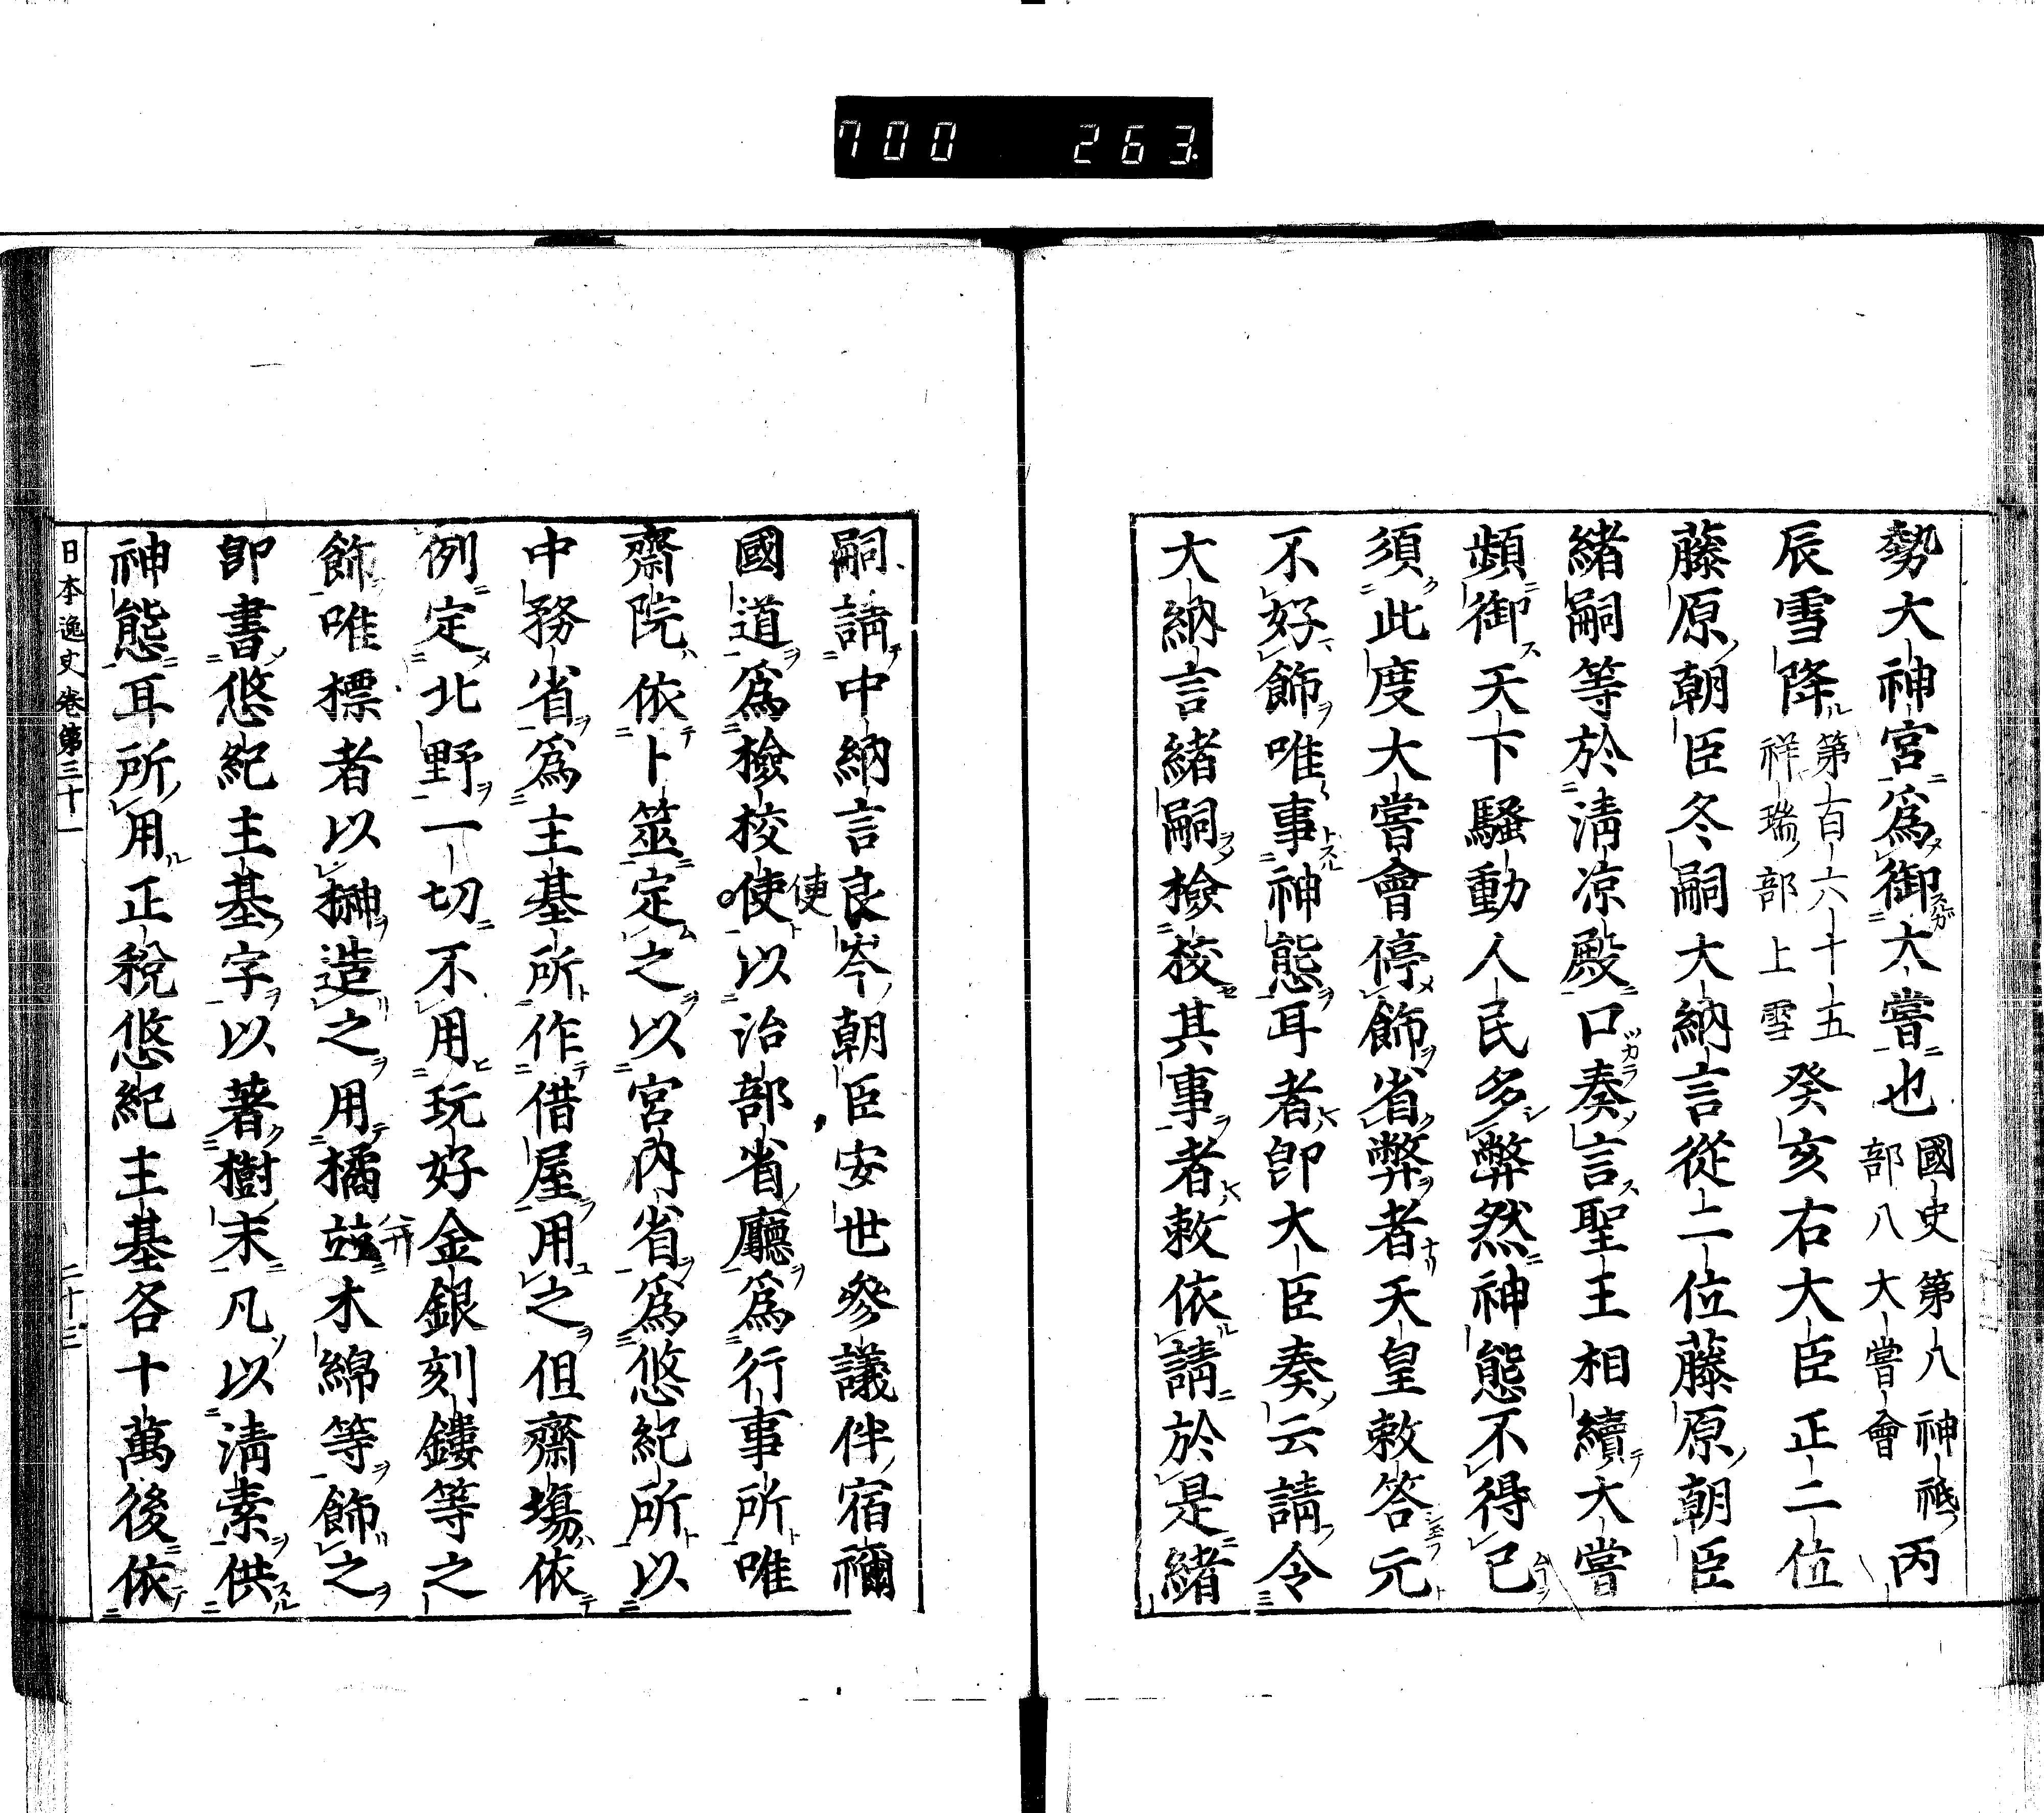 700 263
勢大神宮爲御大嘗也國史第八神祇部八大嘗會丙
辰雪降第百六十五祥瑞部上雪癸亥右大臣正二位
藤原朝臣冬嗣大納言從二位藤原朝臣
緒嗣等於淸凉殿口奏言聖王相續大嘗
頻御天下騷動人民多弊然神態不得已
須此度大嘗會停飾省弊者天皇敕答元
不好飾唯事神態耳者卽大臣奏云請令
大納言緒嗣檢校其事者敕依請於是緒
嗣請中納言良岑朝臣安世參議伴宿禰
國道爲檢校使以治部省廳爲行事所唯
齋院依卜筮定之以宮內省爲悠紀所以
中務省爲主基所作借屋用之但齋塲依
例定北野一切不用玩好金銀刻鏤等之
飾唯標者以榊造之用橘並木綿等飾之
卽書悠紀主基字以著樹末凡以淸素供
神態耳所用正稅悠紀主基各十萬後依
日本逸史卷第三十一 二十三